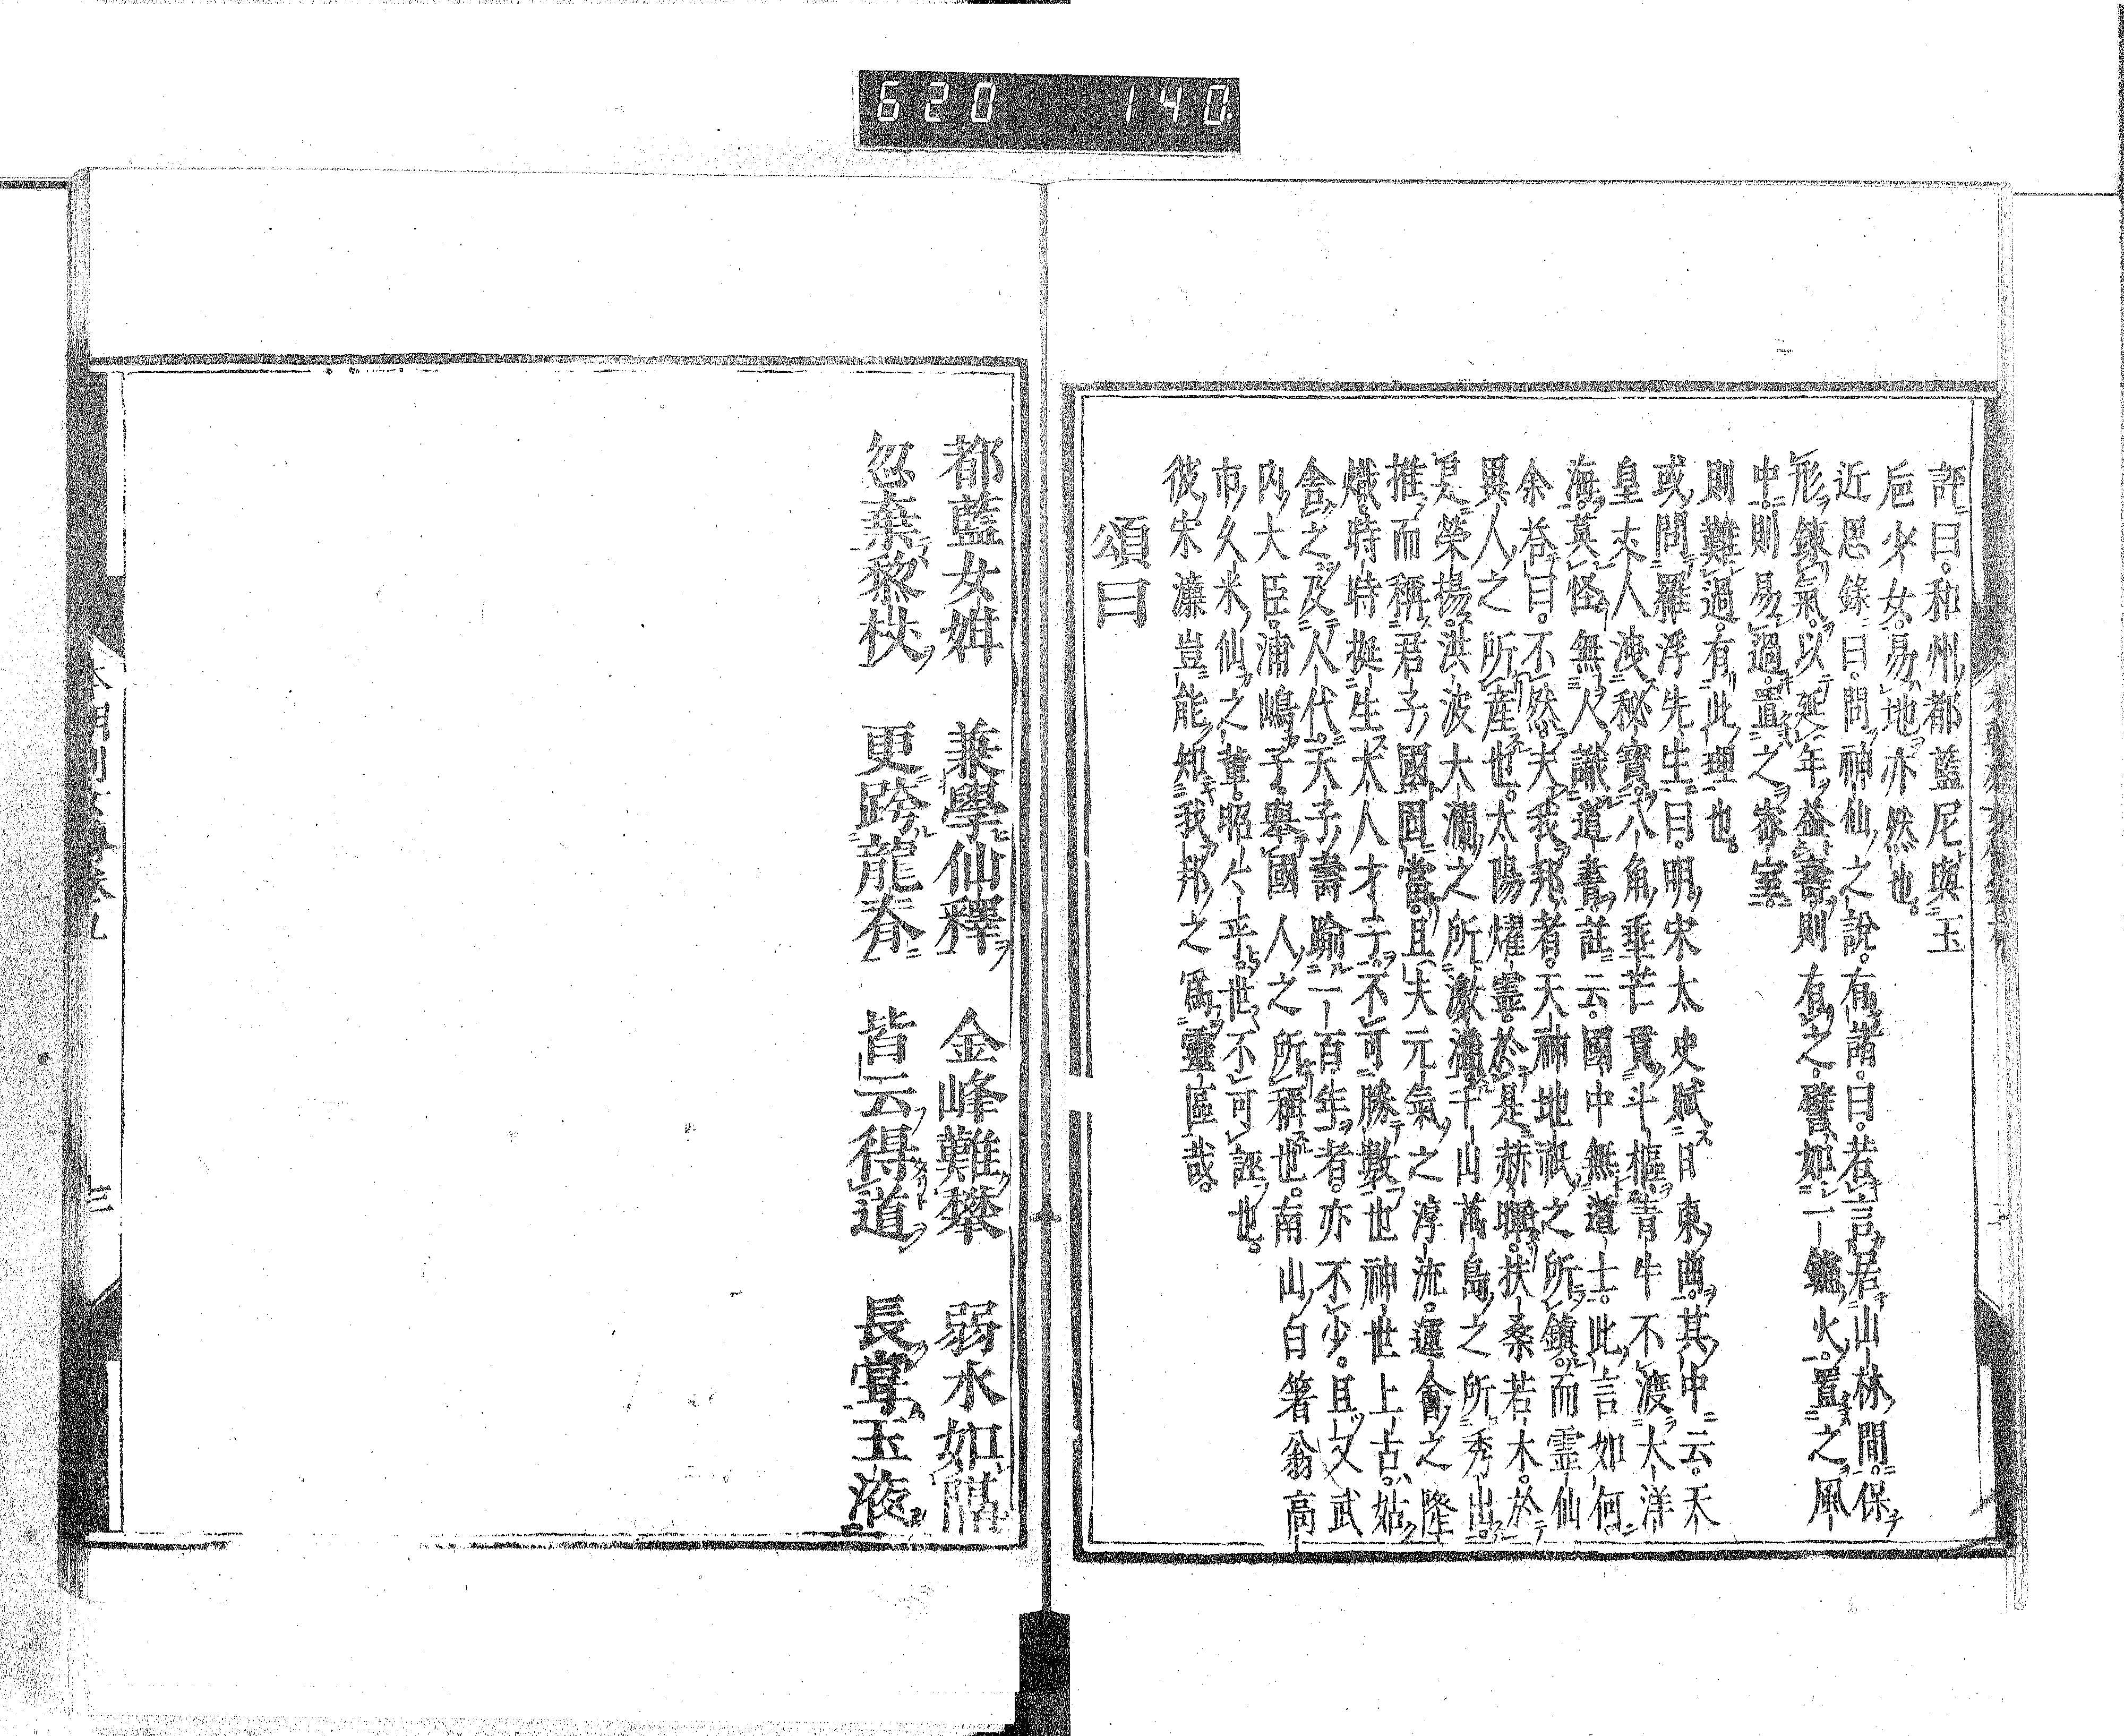 620 140
評曰。和州都藍尼與玉
巵少女。易地亦然也。
近思錄曰。問神仙之說。有諸。曰。若言居山林間。保
形鍊氣。以延年益壽。則有之。譬如一鑪火。置之風
中。則易過。置之密室。
則難過。有此理也。
或問。羅浮先生曰。明宋太史賦日東曲。其中云。天
皇夫人洩秘寶。八角垂芒貫斗樞。青牛不渡大洋
海。莫怪無人識道書。註云。國中無道士。此言如何。
余答曰。不然。夫我邦者。天神地祇之所鎮。而霊仙
異人之所產也。太陽燿霊。於是赫暉。扶桑若木。於
是榮揚。洪波大瀾之所激灑。千山萬島之所秀出。
推而稱君子國固當。且夫元氣之淳流。運會之隆
熾。時時挺生大人才子。不可勝數也。神世上古。姑
舎之。及人代。天子壽踰一百年者。亦不少。且又武
内大臣。浦嶋子。擧國人之所稱也。南山白箸翁。高
市久米仙之輩。昭昭乎。世不可誣也。
彼宋濂豈能知我邦之爲靈區哉。
頌曰
都藍女娟 兼學仙釋 金峰難攀 弱水如隔
忽棄黎杖 更跨龍脊 皆云得道 長嘗玉液